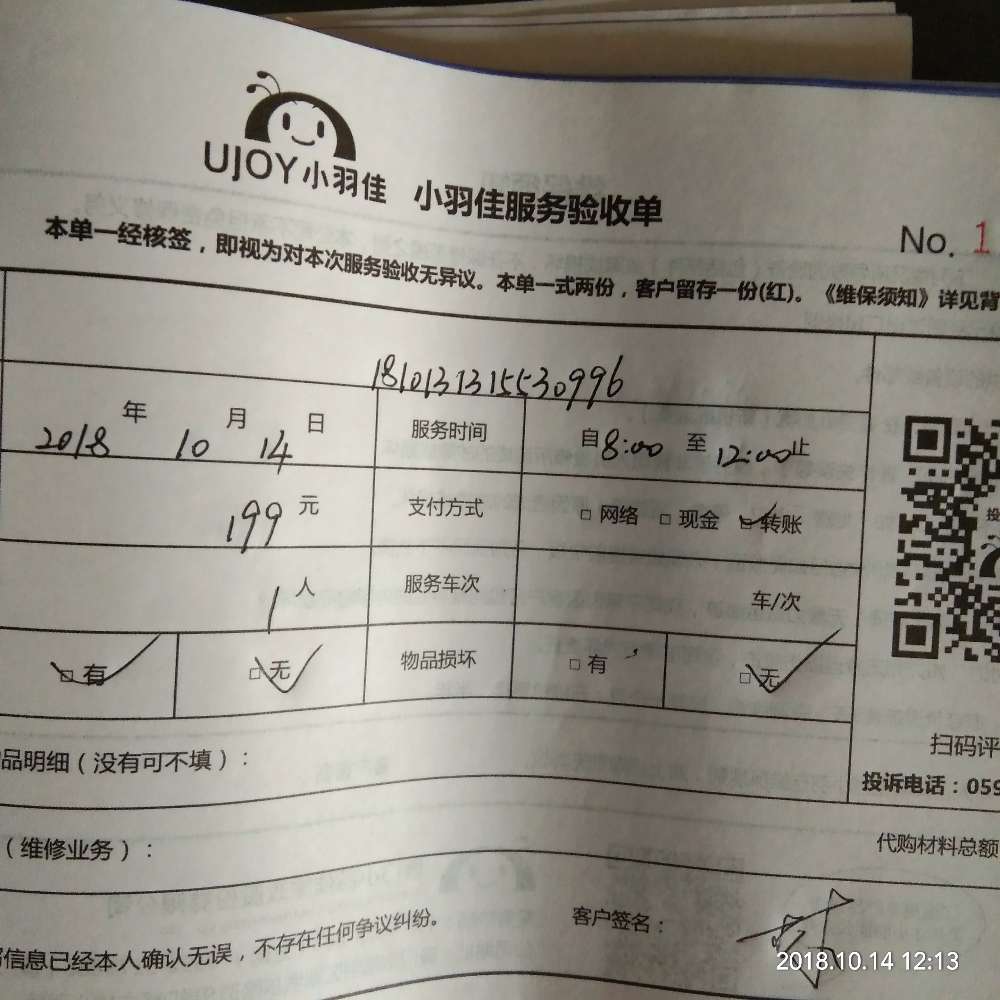 UJOY小羽佳 小羽佳服务验收单
No. 1
本单一经核签，即视为对本次服务验收无异议。本单一式两份，客户留存一份(红)。《维保须知》详见背
181013131553099​6
2018年 10月 14日 服务时间 自8:00至12:00止
199元 支付方式 □网络 □现金 ☑转账
1人 服务车次 车/次
☑有 ☑无 物品损坏 □有 ☑无
扫码评
品明细（没有可不填）：
投诉电话：059
（维修业务）：
代购材料总额
信息已经本人确认无误，不存在任何争议纠纷。
客户签名：
2018.10.14 12:13